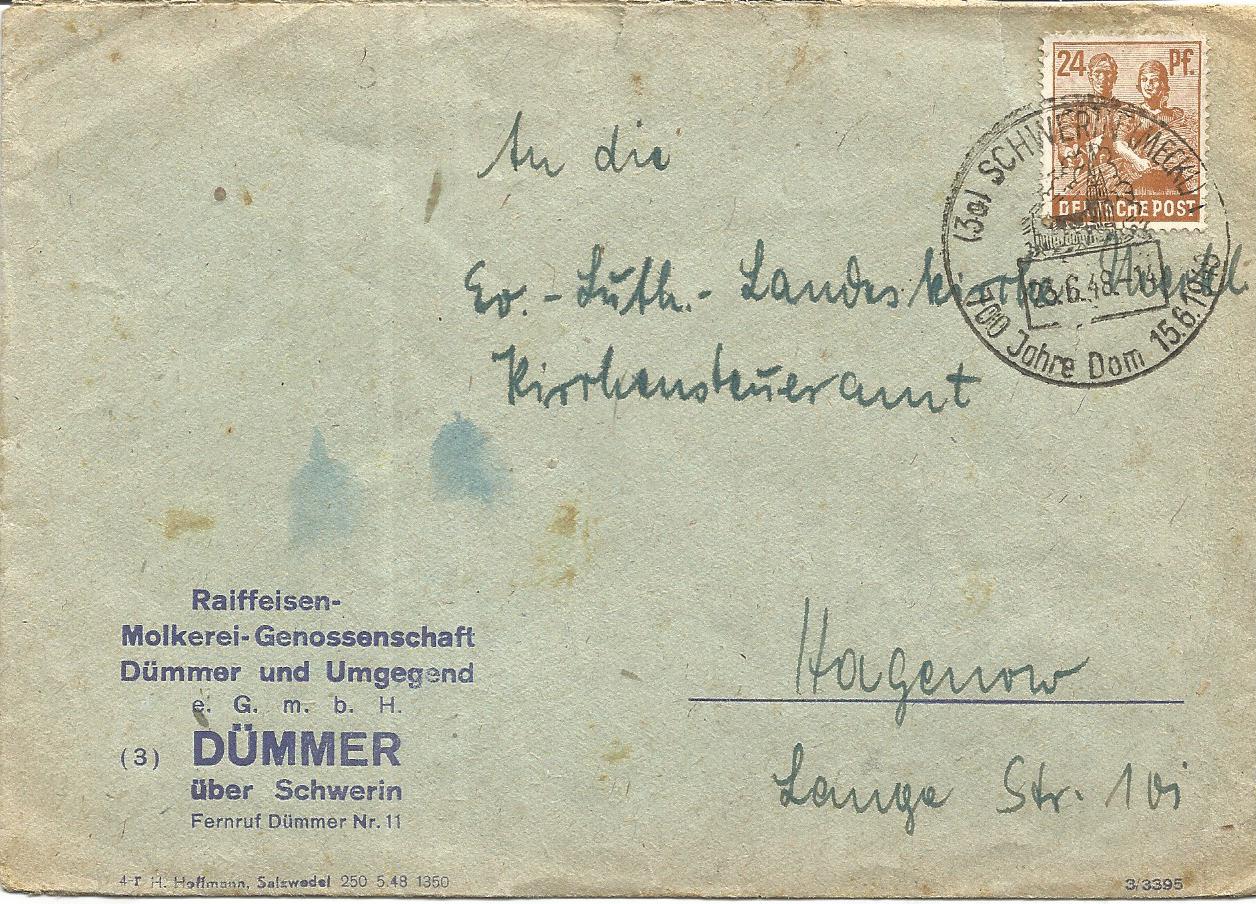 24 Pf.
DEUTSCHE POST
(3a) SCHWERIN (MECKL)
23.6.48.-14
700 Jahre Dom 15.6.1948
An die
Ev.-Luth.- Landeskirche Meckl.
Kirchensteueramt
Hagenow
Lange Str. 10
Raiffeisen-
Molkerei-Genossenschaft
Dümmer und Umgegend
e. G. m. b. H.
(3) DÜMMER
über Schwerin
Fernruf Dümmer Nr. 11
H. Hoffmann, Salzwedel 250 5.48 1350
3/3395